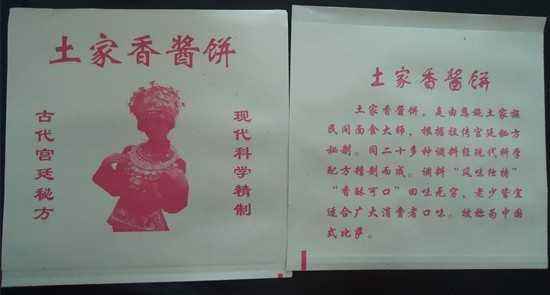 土家香酱饼
古代宫廷秘方
现代科学精制
土家香酱饼
土家香酱饼，是由恩施土家族
民间面食大师，根据祖传宫廷秘方
秘制。同二十多种调料经现代科学
配方精制而成。调料“风味独特”
“香酥可口”回味无穷，老少皆宜
适合广大消费者口味。被称为中国
式比萨。